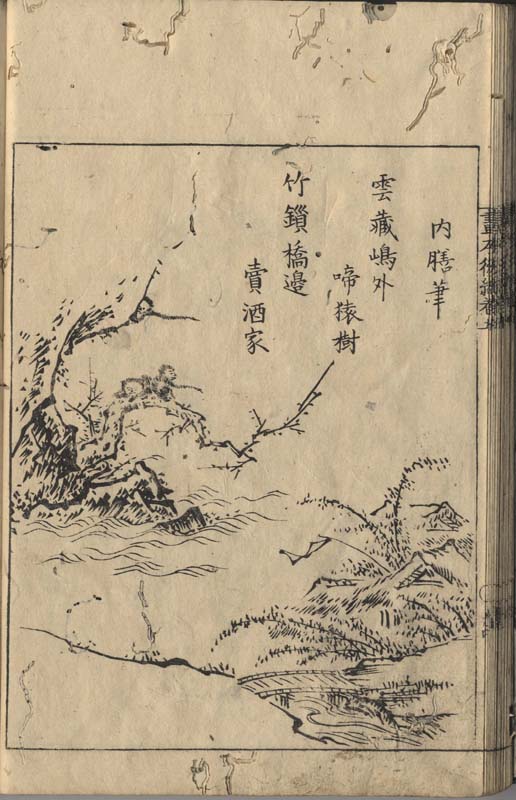 内膳筆
雲藏嶋外
啼猿樹
竹鎖橋邊
賣酒家